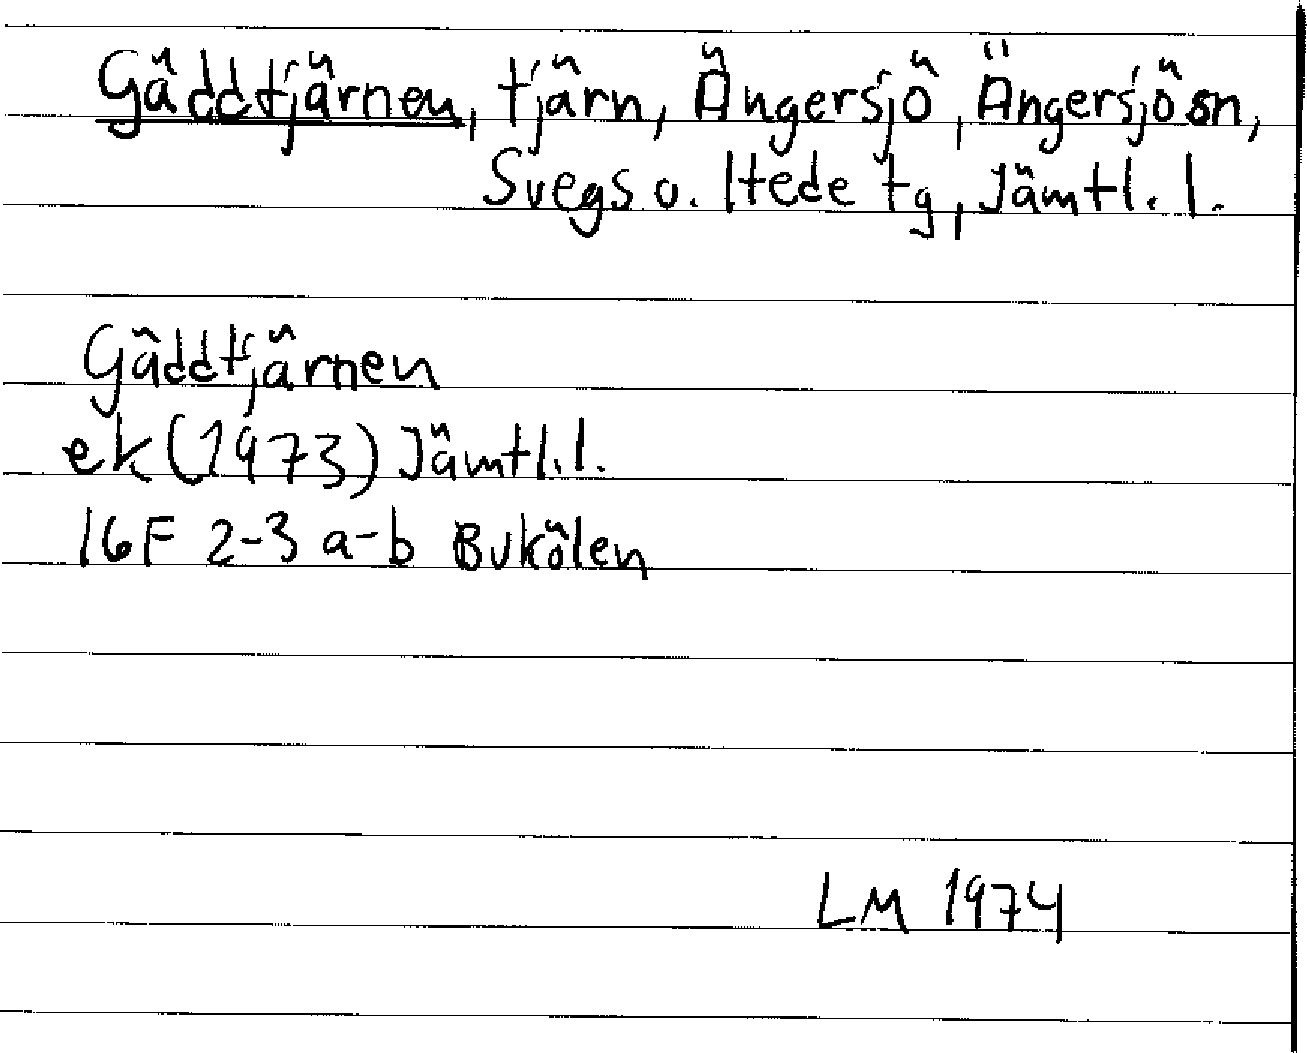 Gäddtjärnen, tjärn, Ängersjö, Ängersjö sn,
Svegs o. Hede tg, Jämtl. l.
Gäddtjärnen
ek (1973) Jämtl. l.
16F 2-3 a-b Bukölen
LM 1974